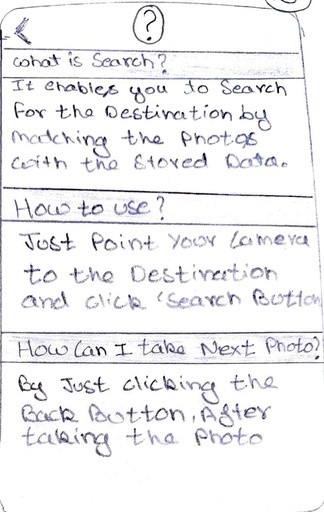 ?
What is Search?
It enables you to Search
For the Destination by
matching the Photos
with the Stored Data.
How to use?
Just Point Your Camera
to the Destination
and click 'Search Button
How Can I take Next Photo?
By Just clicking the
Back Button, After
taking the Photo